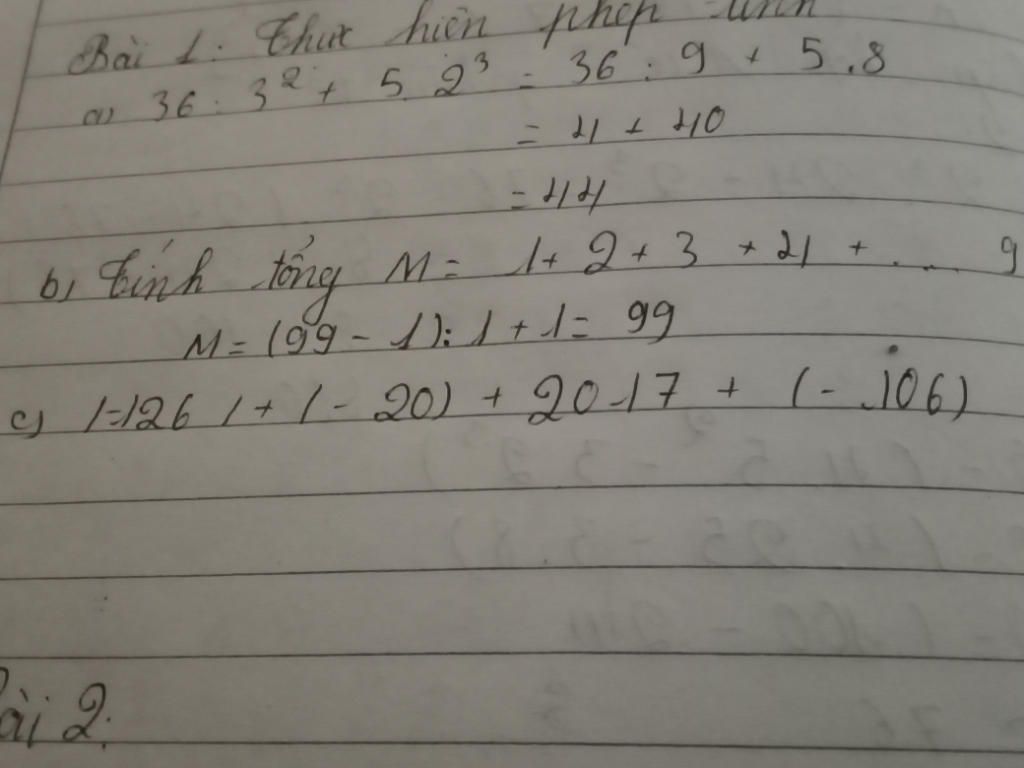 Bài 1: Thực hiện phép tính
a) 36 : 3² + 5.2³ = 36 : 9 + 5.8
= 4 + 40
= 44
b) Tính tổng M = 1 + 2 + 3 + 4 + ... 9
M = (99 - 1) : 1 + 1 = 99
c) |-126| + (- 20) + 2017 + (- 106)
Bài 2: